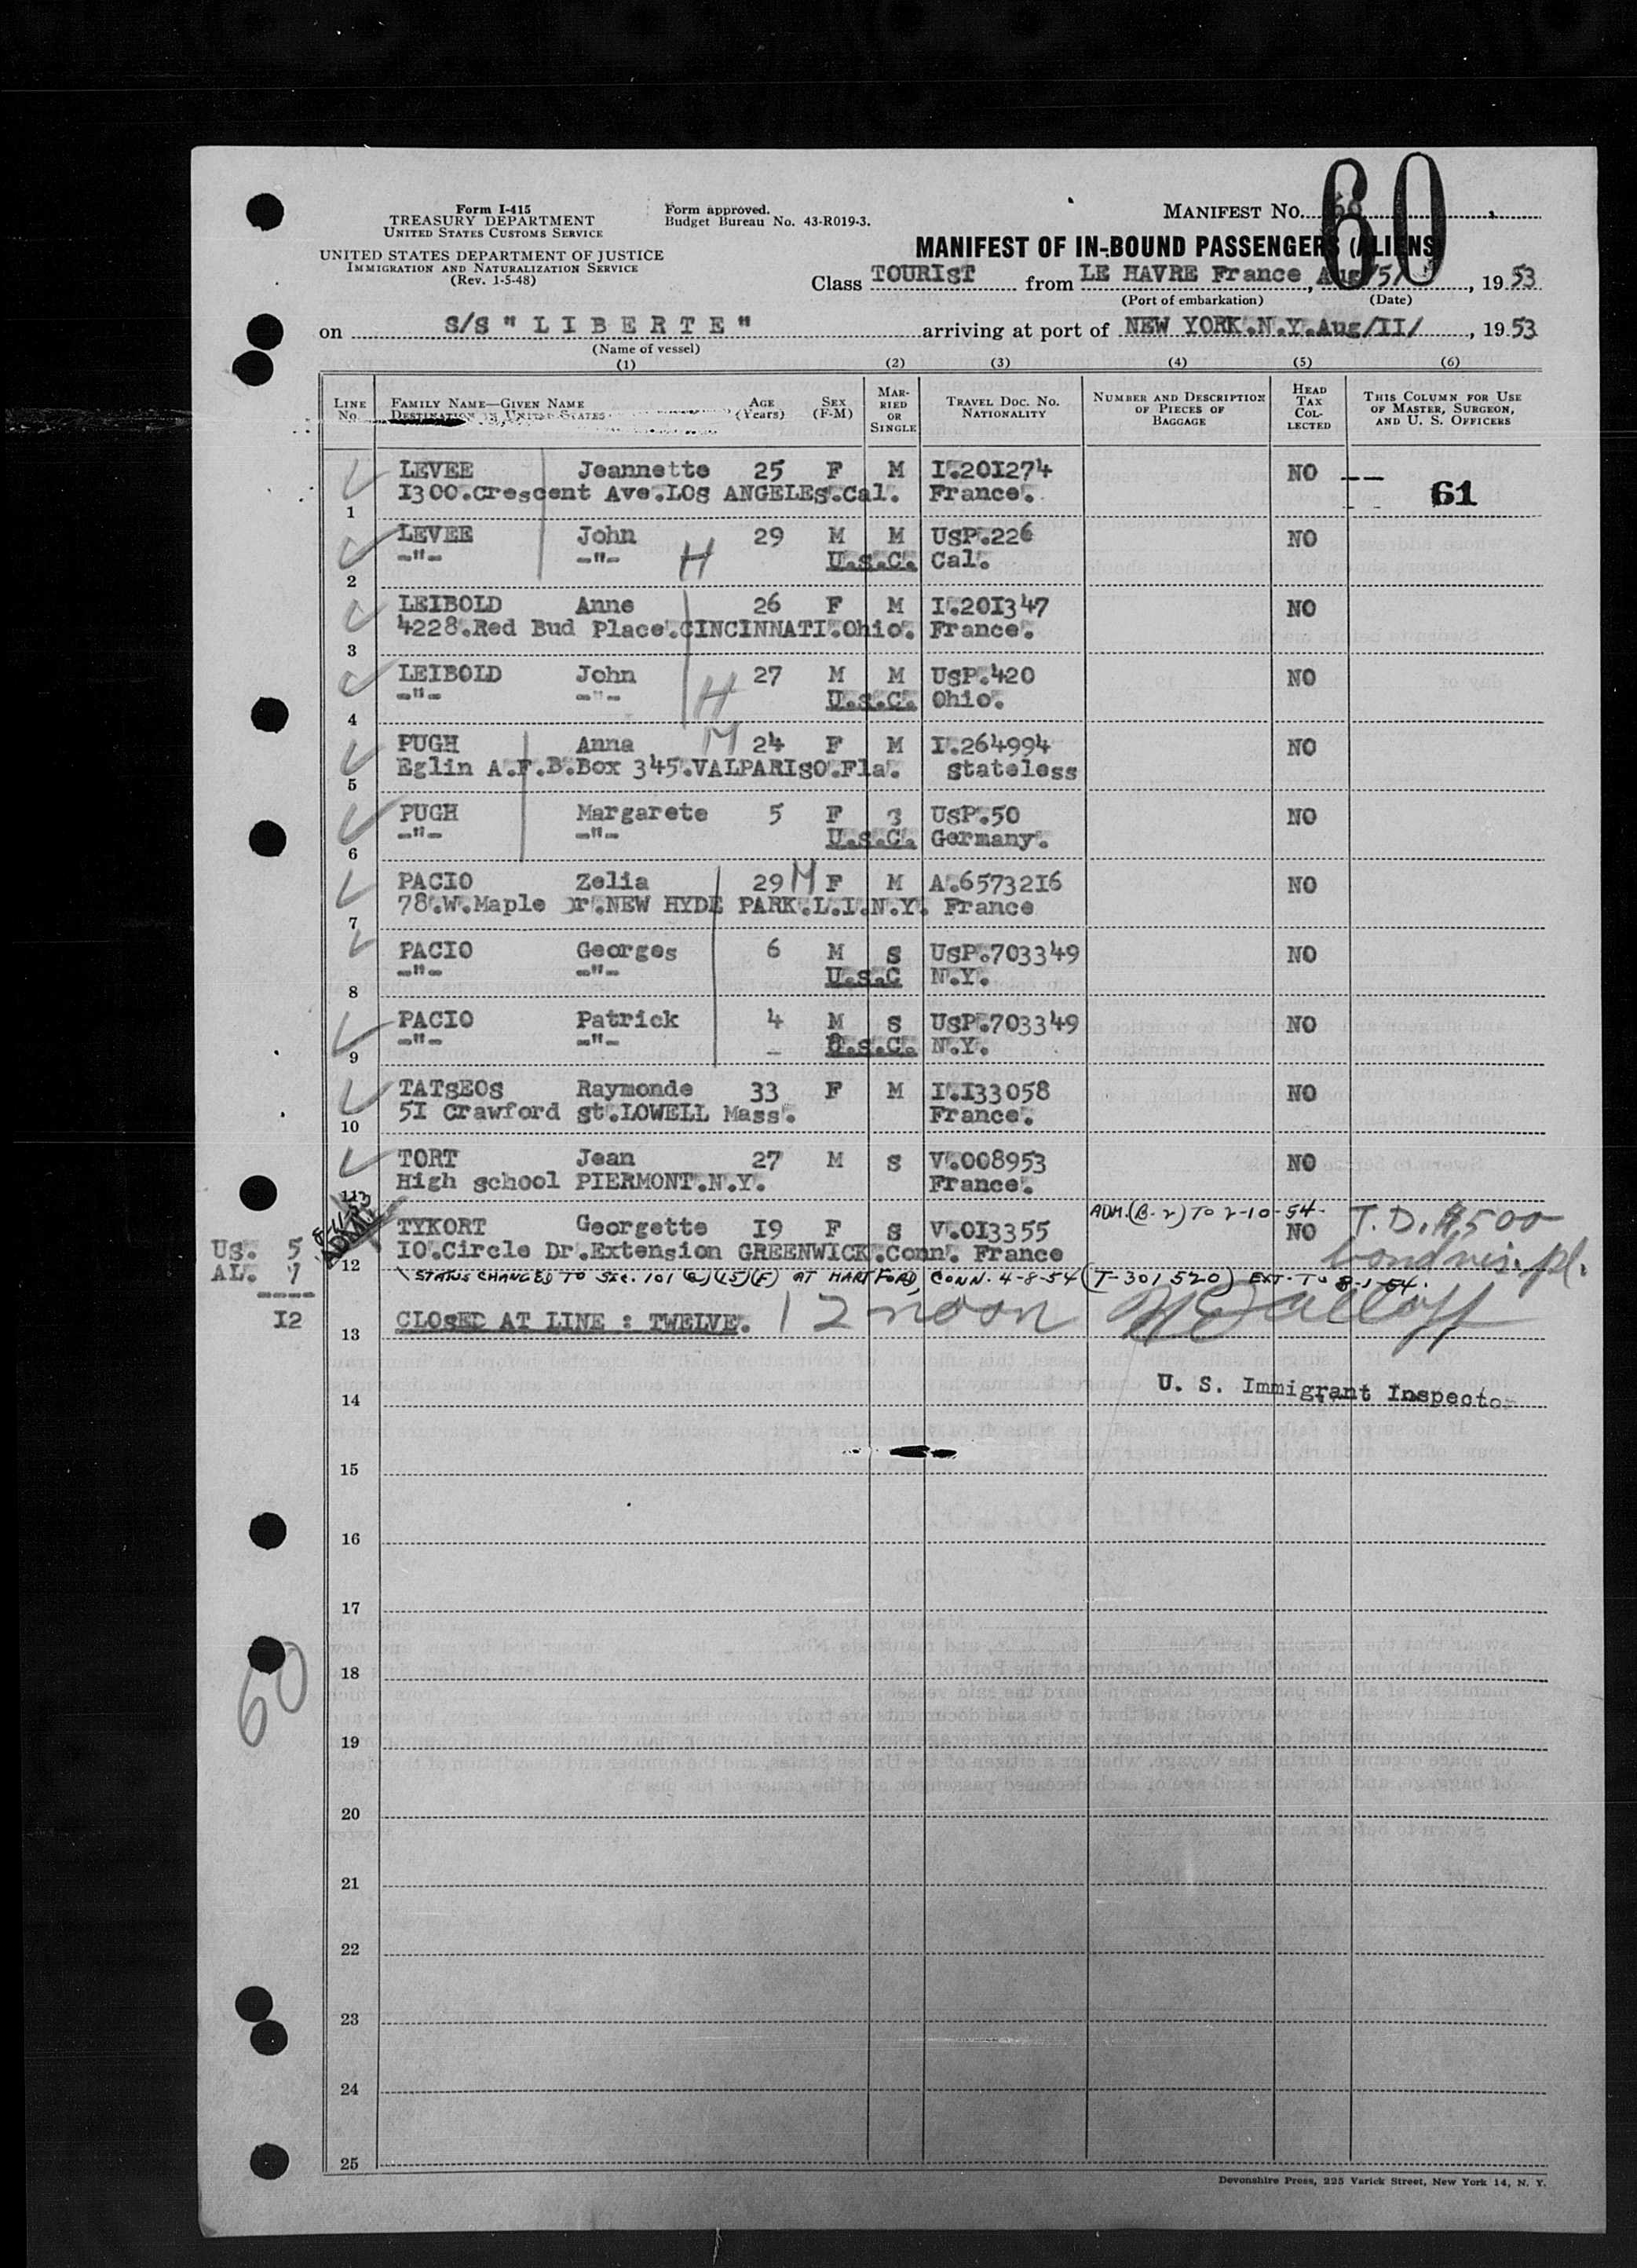 Form I-415
TREASURY DEPARTMENT
UNITED STATES CUSTOMS SERVICE
UNITED STATES DEPARTMENT OF JUSTICE
IMMIGRATION AND NATURALIZATION SERVICE
(Rev. 1-5-48)
Form approved.
Budget Bureau No. 43-R019-3.
MANIFEST No.
60
MANIFEST OF IN-BOUND PASSENGERS (ALIENS
Class TOURIsT from LE HAVRE France, Aug/5/, 1953
(Port of embarkation) (Date)
on S/S " L I B E R T E " arriving at port of NEW YORK.N.Y.Aug/II/, 1953
(Name of vessel)
(1) (2) (3) (4) (5) (6)
LINE No. FAMILY NAME—GIVEN NAME DESTINATION IN UNITED STATES AGE (Years) SEX (F-M) MARRIED OR SINGLE TRAVEL DOC. NO. NATIONALITY NUMBER AND DESCRIPTION OF PIECES OF BAGGAGE HEAD TAX COLLECTED THIS COLUMN FOR USE OF MASTER, SURGEON, AND U. S. OFFICERS
LEVEE Jeannette 25 F M I.20I274 NO
1 I300.Crescent Ave.LOs ANGELEs.Cal. France. 61
LEVEE John 29 M M UsP.226 NO
2 -"- -"- H U.s.C. Cal.
LEIBOLD Anne 26 F M I.20I347 NO
3 4228.Red Bud Place.CINCINNATI.Ohio. France.
LEIBOLD John 27 M M UsP.420 NO
4 -"- -"- H U.s.C. Ohio.
PUGH Anna M 24 F M I.264994 NO
5 Eglin A.F.B.Box 345.VALPARIsO.Fla. stateless
PUGH Margarete 5 F s UsP.50 NO
6 -"- -"- U.s.C. Germany.
PACIO Zelia 29 M F M A.65732I6 NO
7 78.W.Maple Dr.NEW HYDE PARK.L.I.N.Y. France
PACIO Georges 6 M s UsP.703349 NO
8 -"- -"- U.s.C N.Y.
PACIO Patrick 4 M s UsP.703349 NO
9 -"- -"- U.s.C. N.Y.
TATsEOs Raymonde 33 F M I.I33058 NO
10 5I Crawford st.LOWELL Mass. France.
TORT Jean 27 M s V.008953 NO
11 High school PIERMONT.N.Y. France.
ADM.(B-2) TO 2-10-54-
8-11-53 ADM. TYKORT Georgette I9 F s V.0I3355 NO T.D. $500
12 IO.Circle Dr.Extension GREENWICK.Conn. France bond vis. pl.
Us. 5
AL. 7
----
I2
STATUS CHANGED TO SEC. 101 (a)(15)(F) AT HARTFORD, CONN. 4-8-54 (T-301 520) EXT- TO 8-1-54.
13 CLOsED AT LINE : TWELVE. 12 noon
14 U. S. Immigrant Inspector
15
16
17
18
60
19
20
21
22
23
24
25
Devonshire Press, 225 Varick Street, New York 14, N. Y.